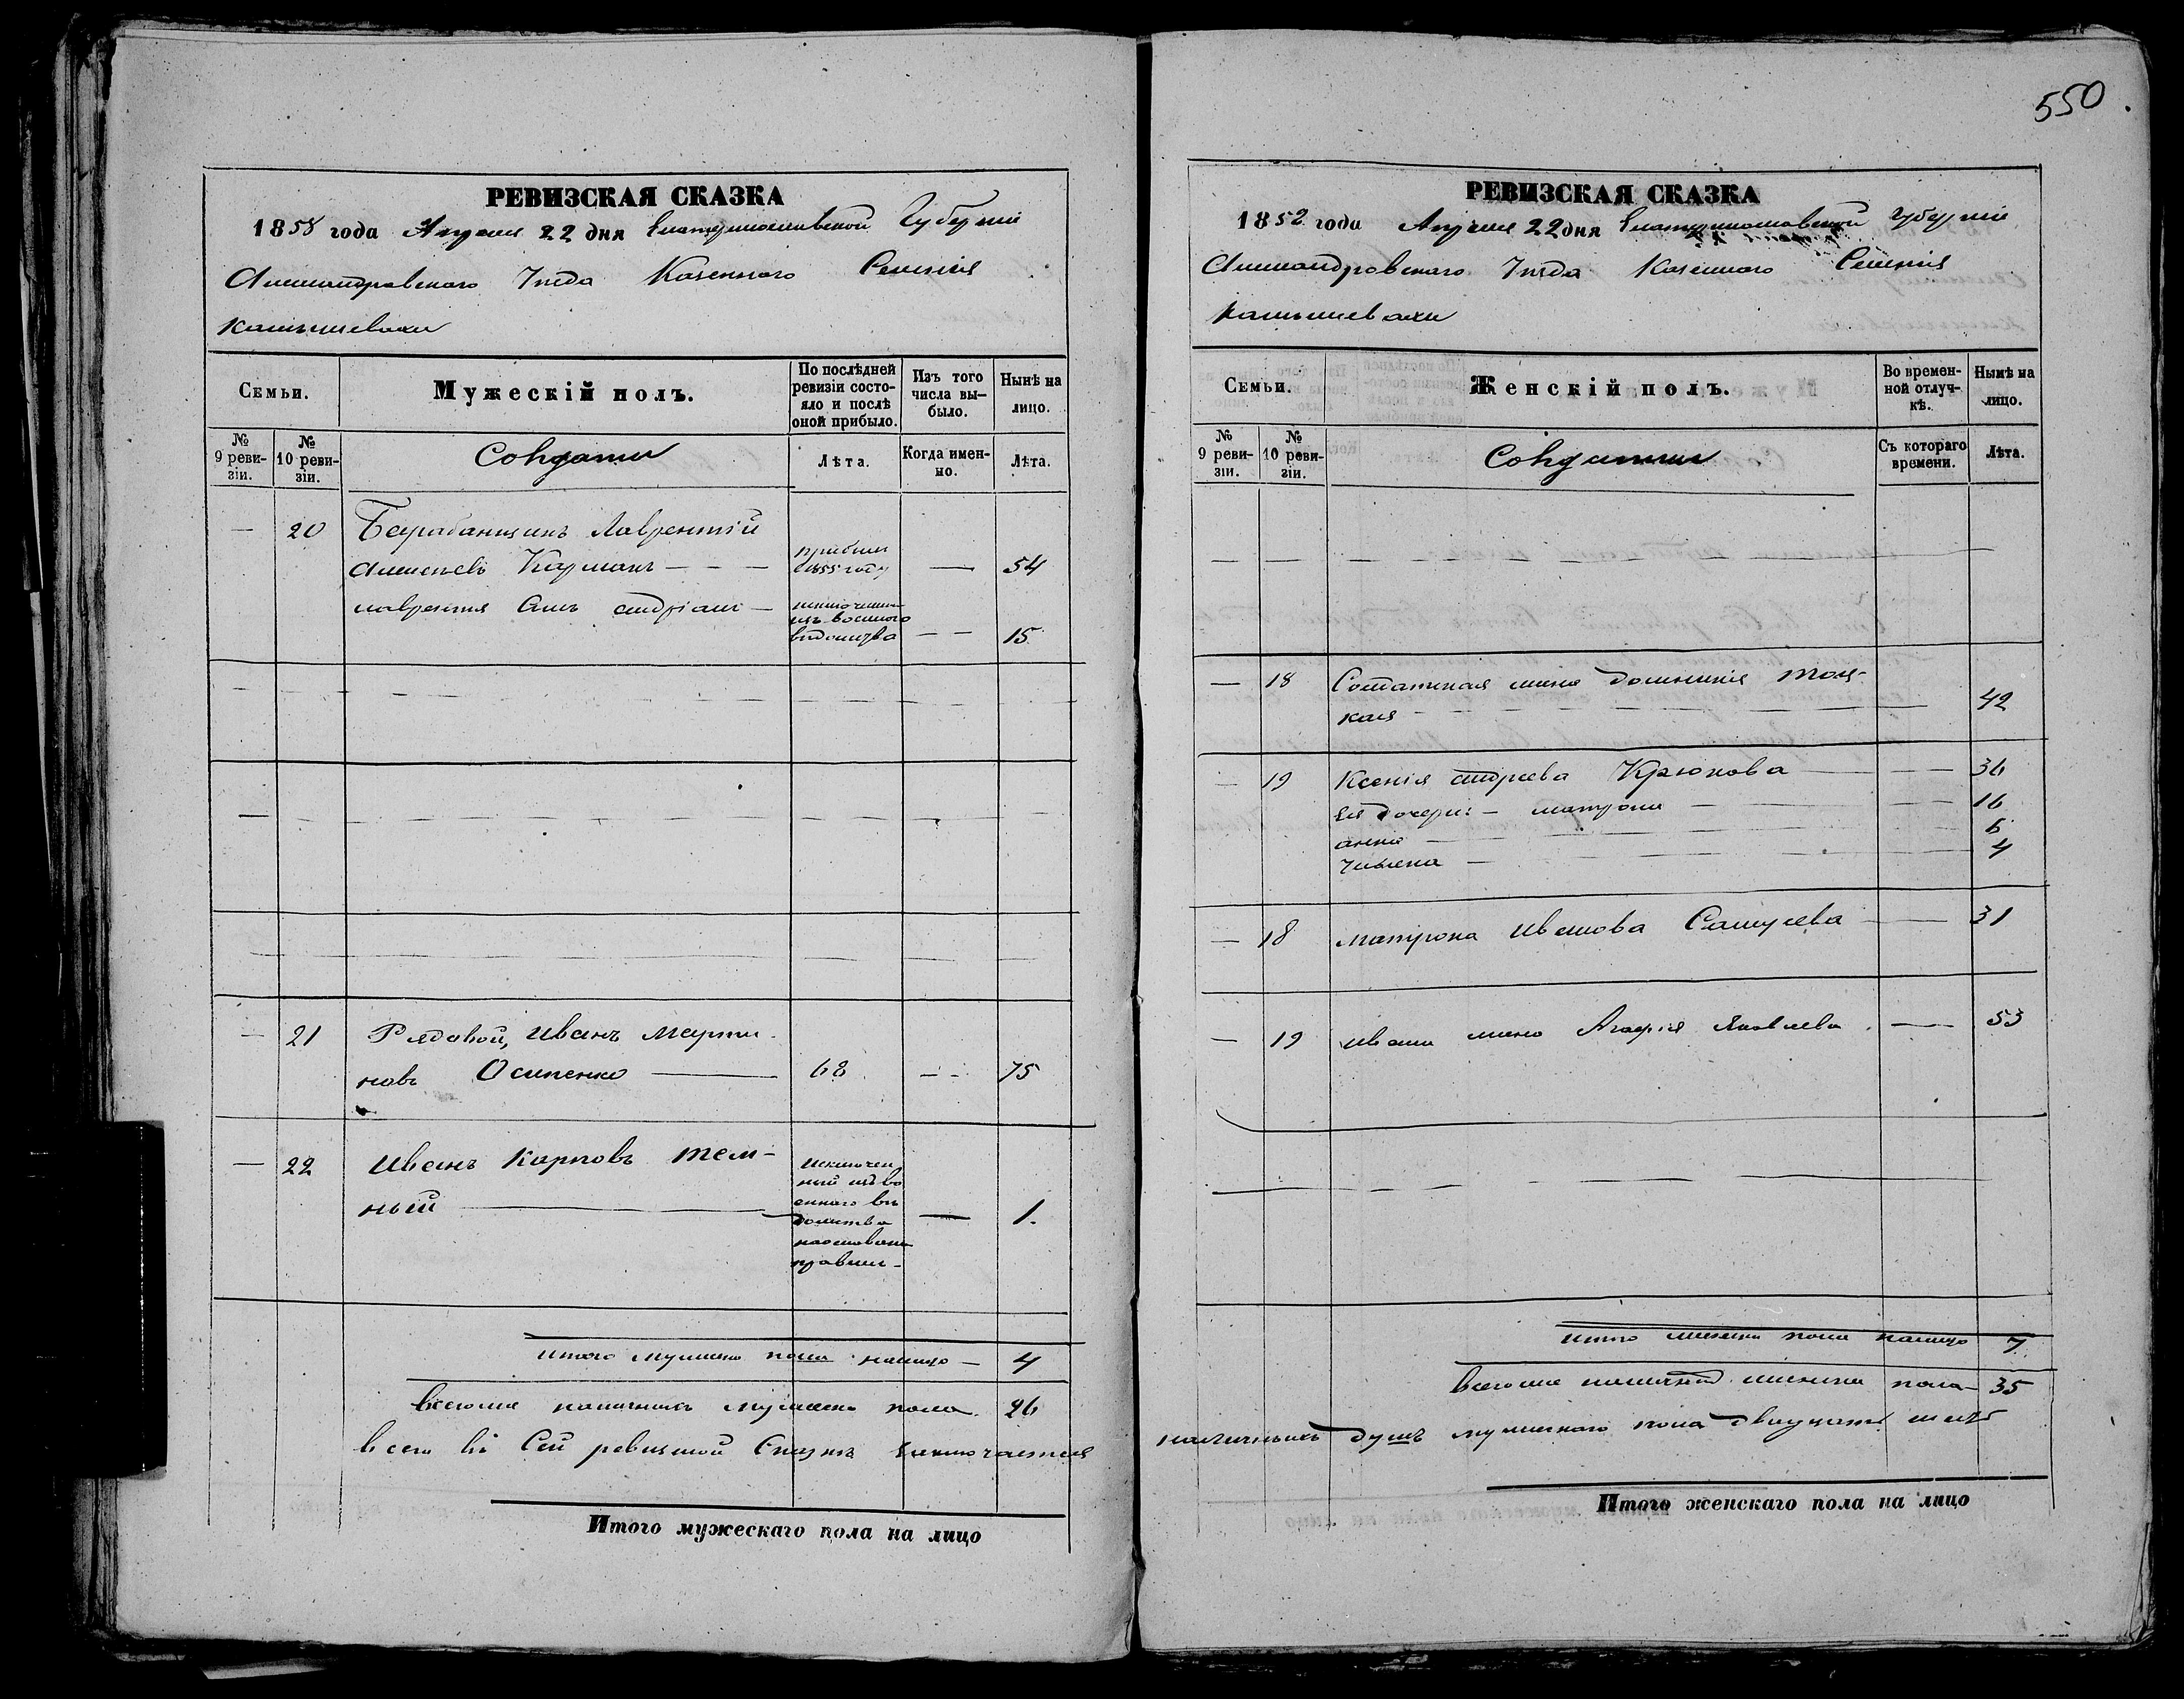 550.
РЕВИЗСКАЯ СКАЗКА
1858 года Апреля 22 дня Екатеринославской Губерніи
Александровского Уезда Казенного Селенія
Камышевахи
Семьи.
Мужескій полъ.
По послѣдней ревизіи состояло и послѣ оной прибыло.
Изъ того числа выбыло.
Нынѣ на лицо.
№ 9 ревизіи.
№ 10 ревизіи.
Солдаты
Лѣта.
Когда именно.
Лѣта.
— 20 Барабанщикъ Лаврентій
Алексѣевъ Карманъ — — — прибыл 1855 году — 54
Лаврентія Сынъ Андріанъ — исключенъ изъ военного ведомства — — 15
— 21 Рядовой, Иванъ Марти-
новъ Осипенко — 68 — — 75
— 22 Иванъ Карповъ Тем-
ный — исключен
ный изъ во
енного ве
домства — 1.
на основании
правил —
Итого мужеска пола налицо — 4
Всего же наличныхъ мужеска пола. 26
Всего въ Сей ревизской Сказкѣ заключается
Итого мужескаго пола на лицо
РЕВИЗСКАЯ СКАЗКА
1858 года Апреля 22 дня Екатеринославской Губерніи
Александровского Уезда Казенного Селенія
Камышевахи
Семьи.
Женскій полъ.
Во временной отлучкѣ.
Нынѣ на лицо.
№ 9 ревизіи.
№ 10 ревизіи.
Солдатки
Съ котораго времени.
Лѣта.
— 18 Солдатская жена Домникія
кая — 42
— 19 Ксенія Андреева Крюкова — — 36
Ея дочери — Матрона — — 16
Анна — 6
Ульяна — 4
— 18 Матрона Иванова — 31
— 19 Ивана жена Агафія Яковлева. — 53
Итого женска пола налицо 7
Всего же наличной женска пола — 35
наличныхъ душъ мужескаго пола двадцать шесть
Итого женскаго пола на лицо